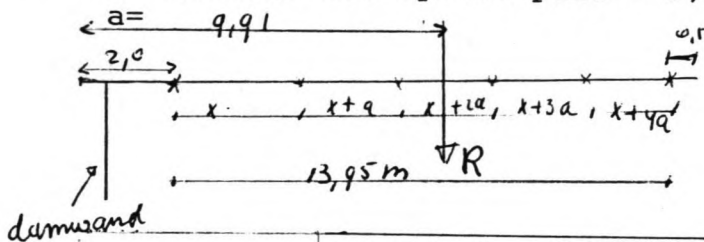 a= 9,91
2,0
x x+a x+2a x+3a x+4a
13,95 m R
damwand